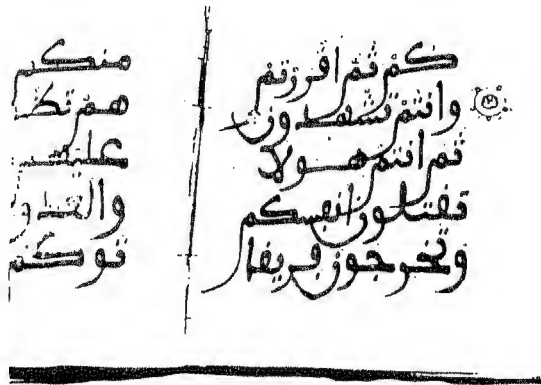 كم ثم اقررتم
وانتم تشهدون
ثم انتم هولا
تقتلون انفسكم
وتخرجون فريقا
منكم
هم تظ
عليهم
والعدو
توكم